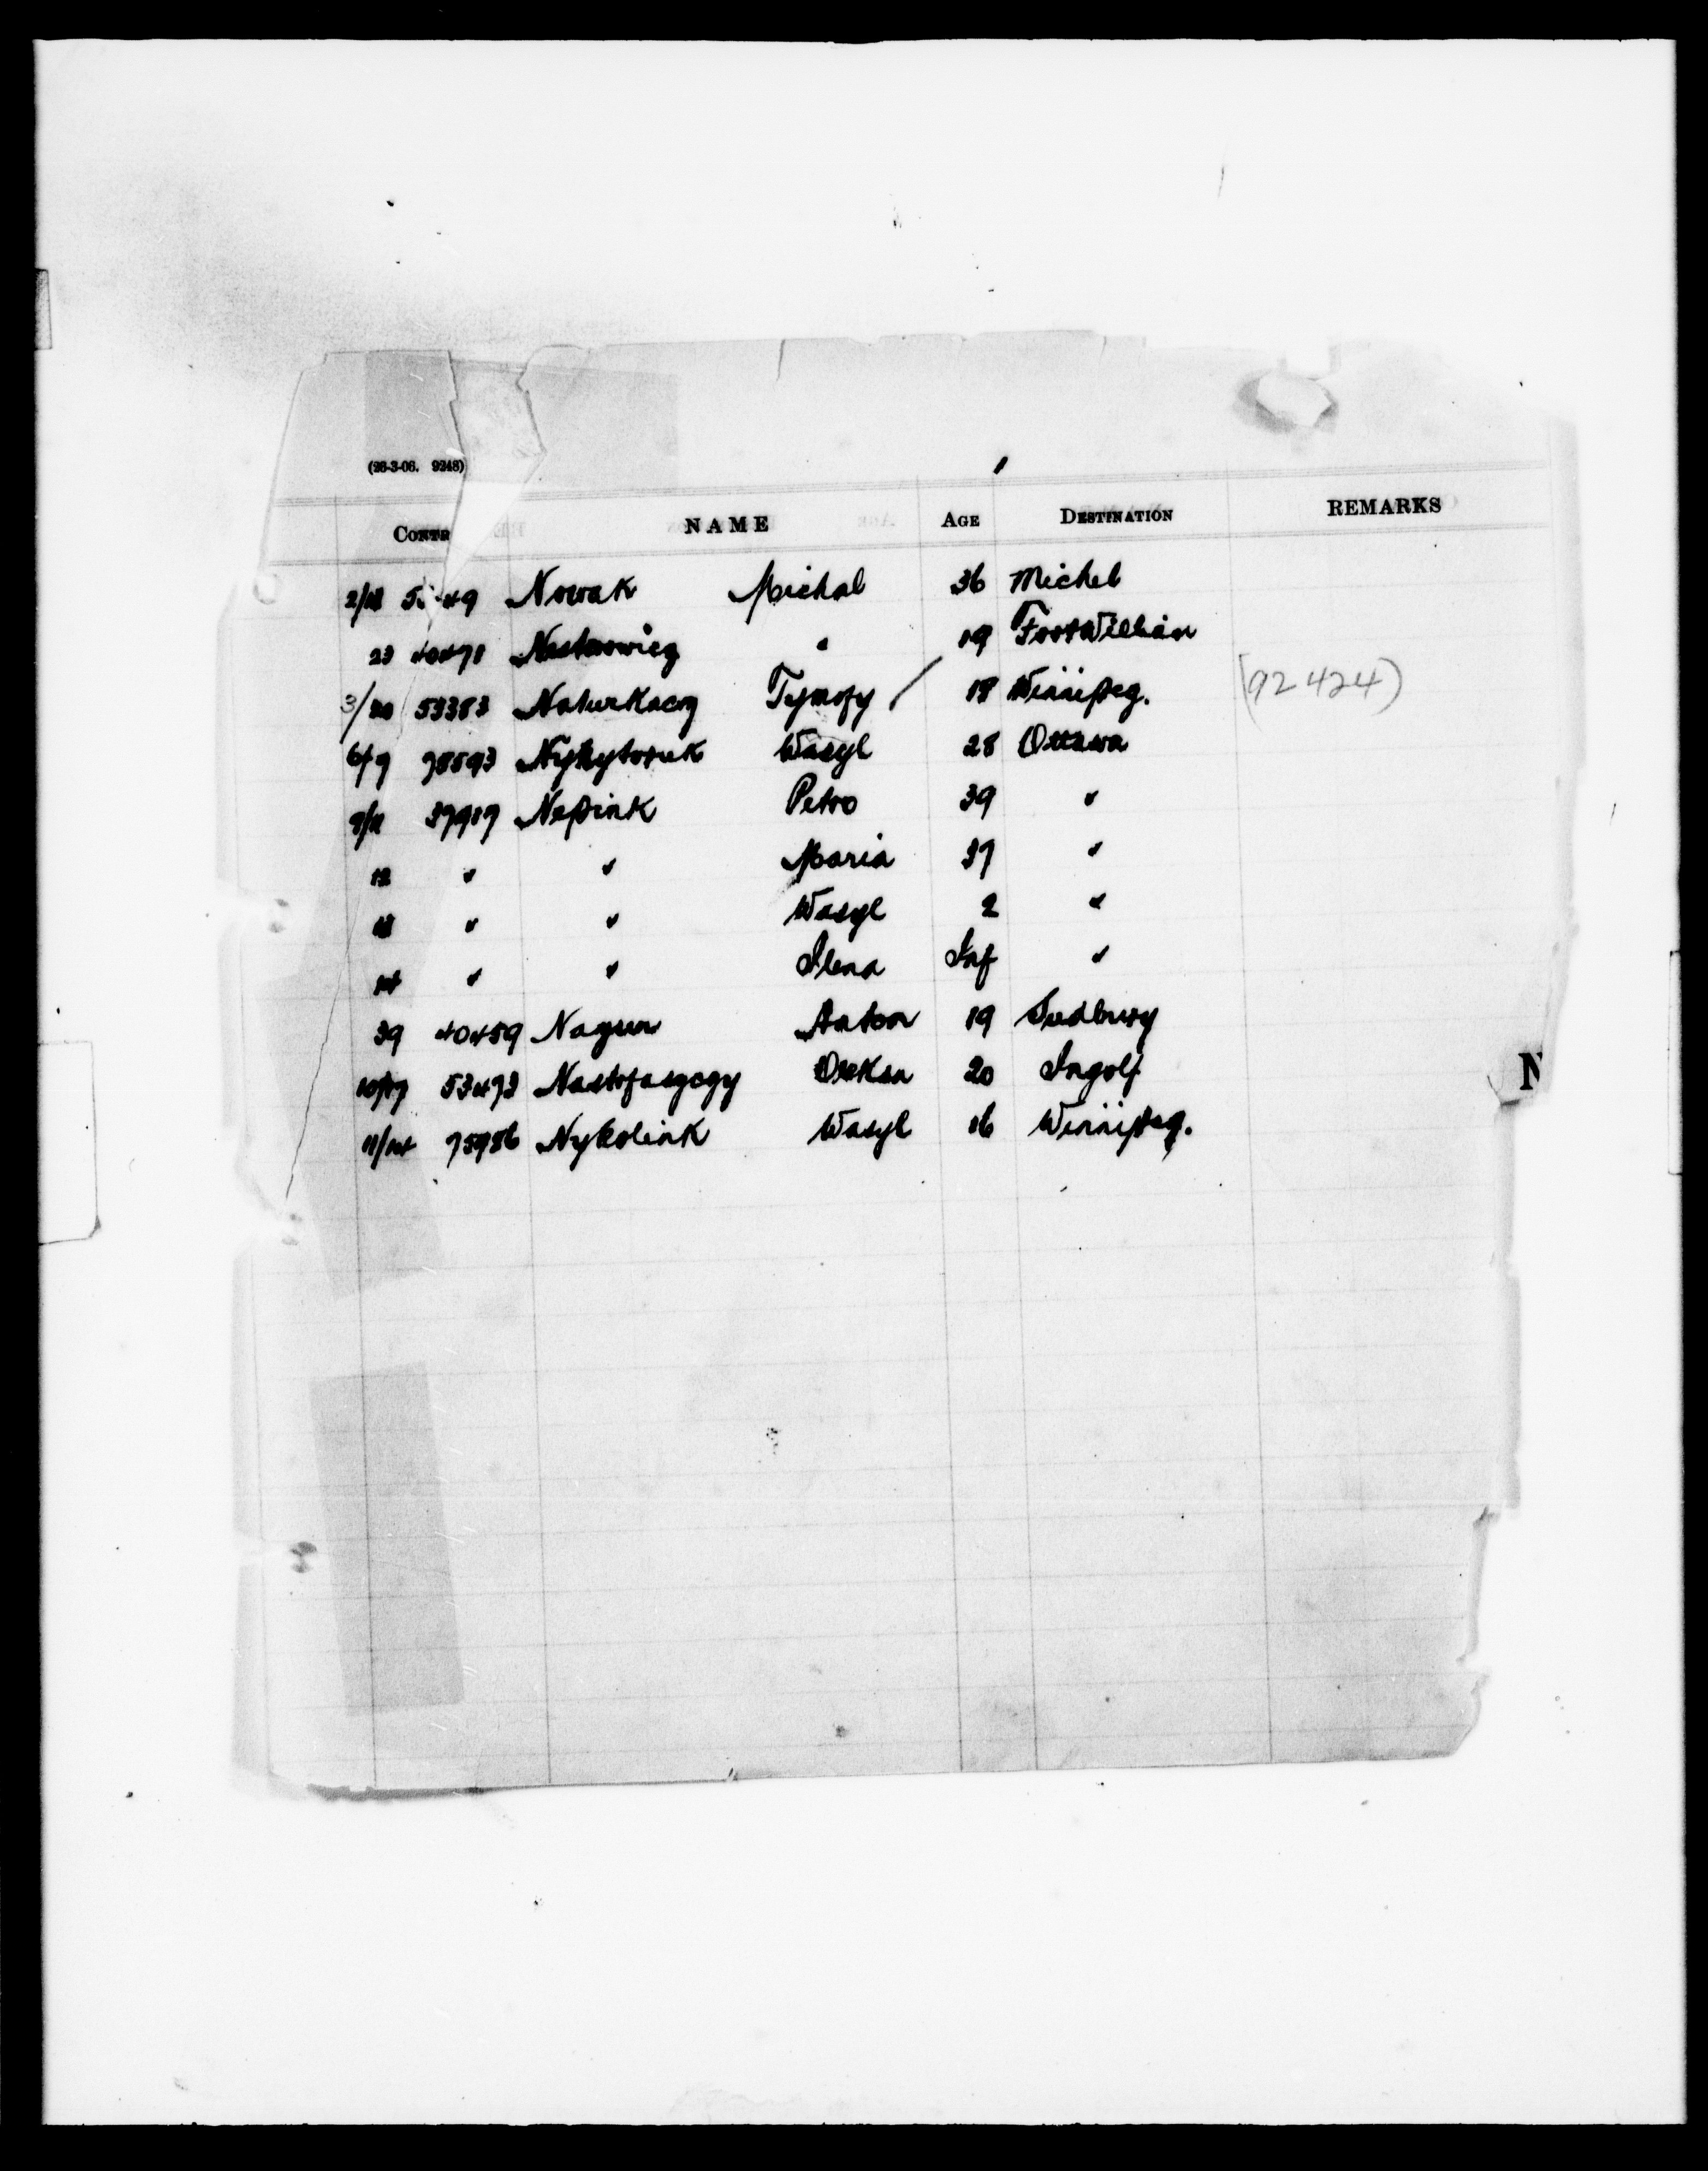 (26-3-06. 9248)
CONTR NAME AGE DESTINATION REMARKS
Nowak Michal 36 Michel
23 40471 Nesterowicz " 19 Fort William
3/20 53383 Naturkacz Tymofy / 18 Winnipeg. (92424)
6/9 78593 Nykytoruk Wasyl 28 Ottawa
9/11 37917 Nepiuk Petro 39 "
12 " " Maria 37 "
13 " " Wasyl 2 "
14 " " Ilena Inf "
39 40459 Nagun Anton 19 Sudbury
10/17 53473 Oleksa 20 Ingolf
N
11/14 Nykoliuk Wasyl 16 Winnipeg.